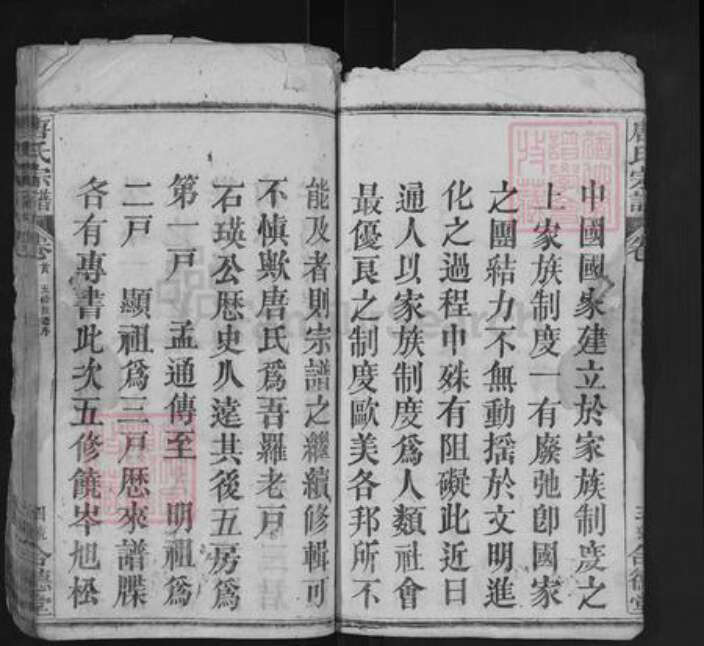 唐氏宗譜
卷
中國國家建立於家族制度之
上家族制度一有廢弛卽國家
之團結力不無動揺於文明進
化之過程中殊有阻礙此近日
通人以家族制度爲人類社會
最優良之制度歐美各邦所不
能及者則宗譜之繼續修輯可
不慎歟唐氏爲吾羅老戸
石瑛公歷史久遠其後五房爲
第一戸 孟通傳至 明祖爲
二戸 顯祖爲三戸歷來譜牒
各有專書此次五修饒岑旭松
唐氏宗譜
卷首
合德堂